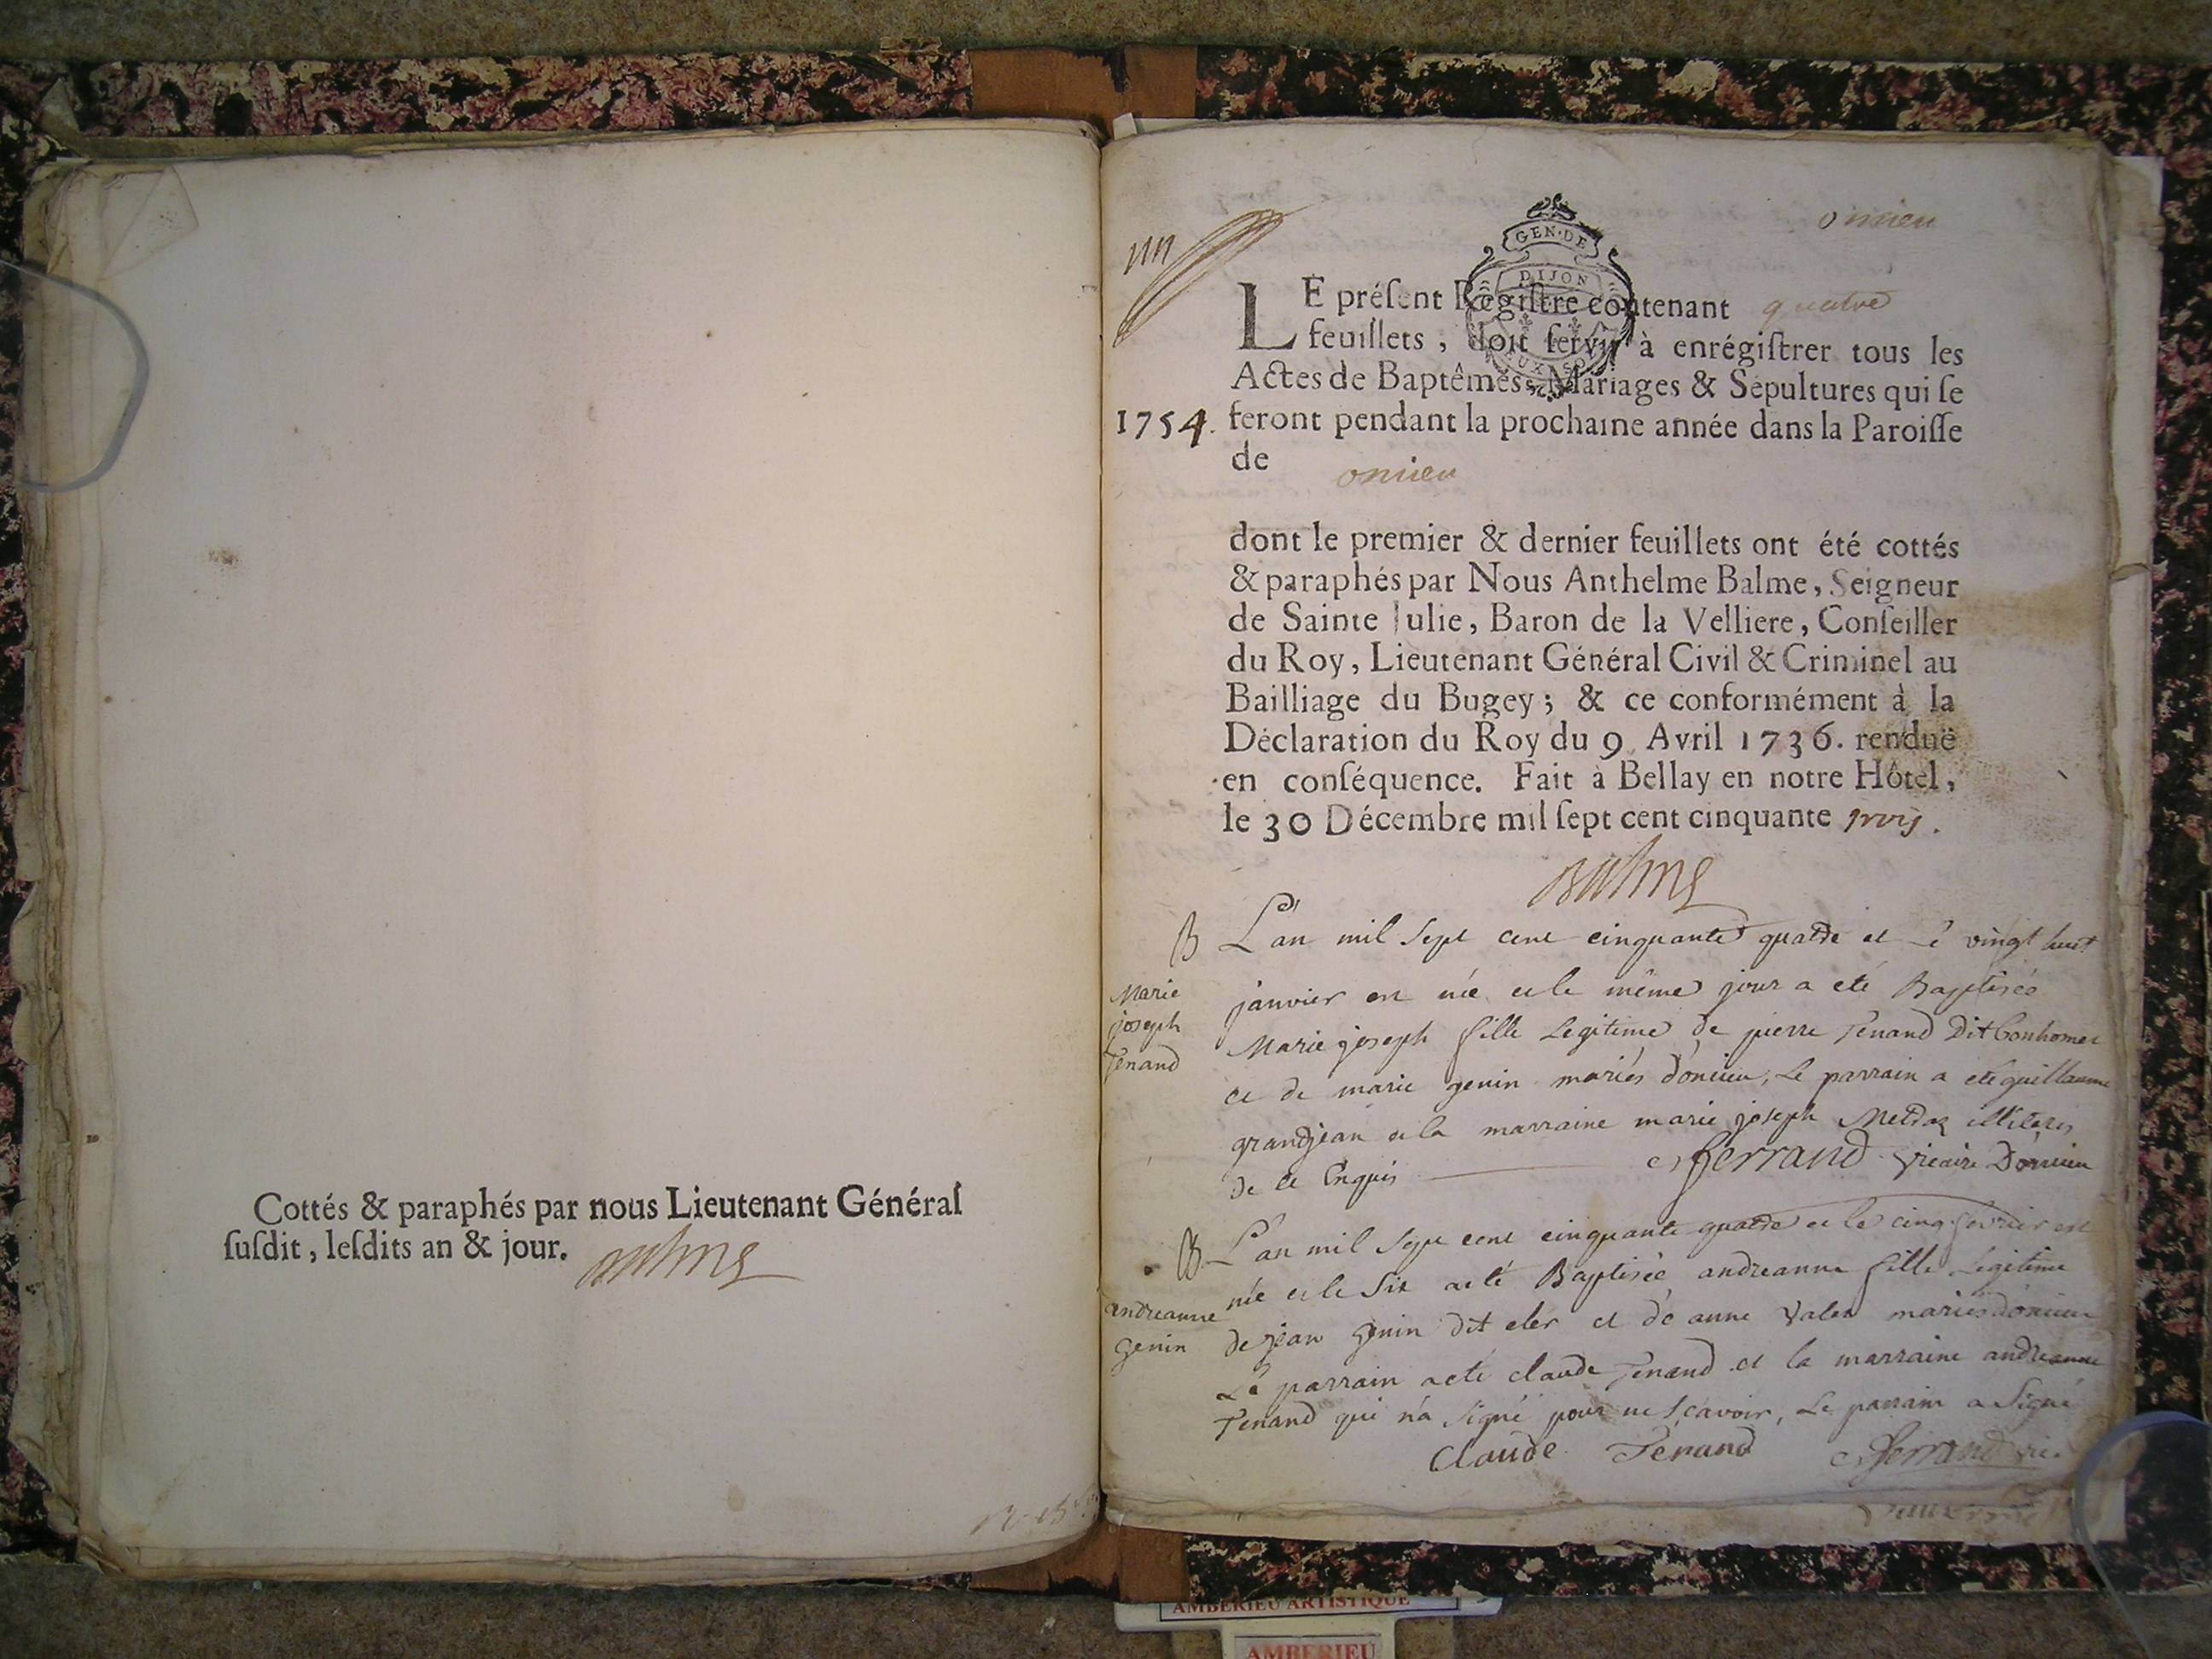 Cottés & paraphés par nous Lieutenant Général
ſuſdit, leſdits an & jour. Balme
un
onnieu
GEN·DE
DIJON
LE préſent Regiſtre contenant quatre
feuillets, doit ſervir à enrégiſtrer tous les
Actes de Baptêmes, Mariages & Sépultures qui ſe
1754. feront pendant la prochaine année dans la Paroiſſe
de onnieu
dont le premier & dernier feuillets ont été cottés
& paraphés par Nous Anthelme Balme, Seigneur
de Sainte Julie, Baron de la Velliere, Conſeiller
du Roy, Lieutenant Général Civil & Criminel au
Bailliage du Bugey; & ce conformément à la
Déclaration du Roy du 9 Avril 1736. renduë
en conſéquence. Fait à Bellay en notre Hôtel,
le 30 Décembre mil ſept cent cinquante trois.
Balme
B L'an mil sept cent cinquante quatre et le vingt huit
janvier est née et le même jour a eté Baptisée
Marie joseph fille Legitime de pierre Tenand Dit bonhomet
et de marie genin mariés d'onieu, Le parrain a eté guillaume
grandjean et la marraine marie joseph illiteris
de ce Enquis Ferrand vicaire D'onnieu
Marie
joseph
Tenand
B L'an mil sept cent cinquante quatre et le cinq fevrier est
née et le six a eté Baptisée andreanne fille Legitime
de jean genin dit cler et de anne mariés d'onieu
Le parrain a eté claude Tenand et la marraine andreanne
Tenand qui n'a signé pour ne scavoir, Le parrain a signé
Claude Tenand Ferrand vic.
andreanne
Genin
AMBERIEU ARTISTIQUE
AMBERIEU